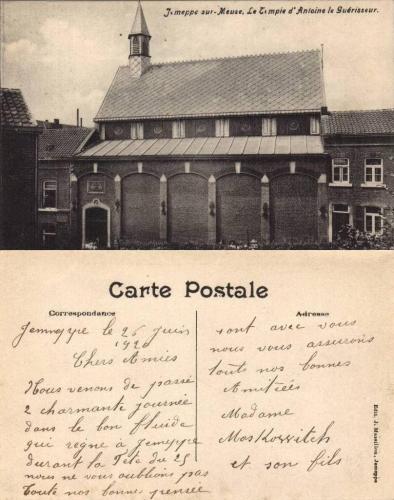 Jemeppe sur-Meuse, Le Temple d'Antoine le Guérisseur.
Carte Postale
Correspondance
Adresse
Jemeppe le 26 juin
1920
Chers Amies
Nous venons de passé
2 charmante journée
dans le bon fluide
qui règne à Jemeppe
durant la fête du 25
nous ne vous oublions pas
Toute nos bonnes pensée
sont avec vous
nous vous assurons
touts nos bonnes
Amitiées
Madame
Moskowitch
et son fils
Edit. J. Jemeppe